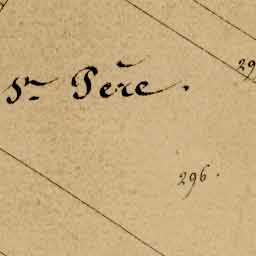 Sn Père.
29
296.